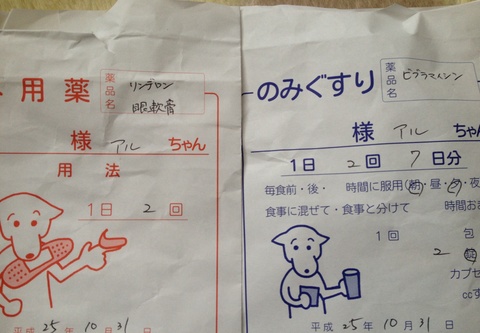 用薬
薬品名
リンデロン
眼軟膏
様 アル ちゃん
用法
1日 2 回
平成 25年 10月 31日
のみぐすり
薬品名
ビブラマイシン
様 アル ちゃん
1日 2 回 7 日分
毎食前・後・ 時間に服用(朝・昼・夕・夜
食事に混ぜて・食事と分けて 時間お
1回 包
2 錠
カプセ
cc
平成 25年 10月 31日